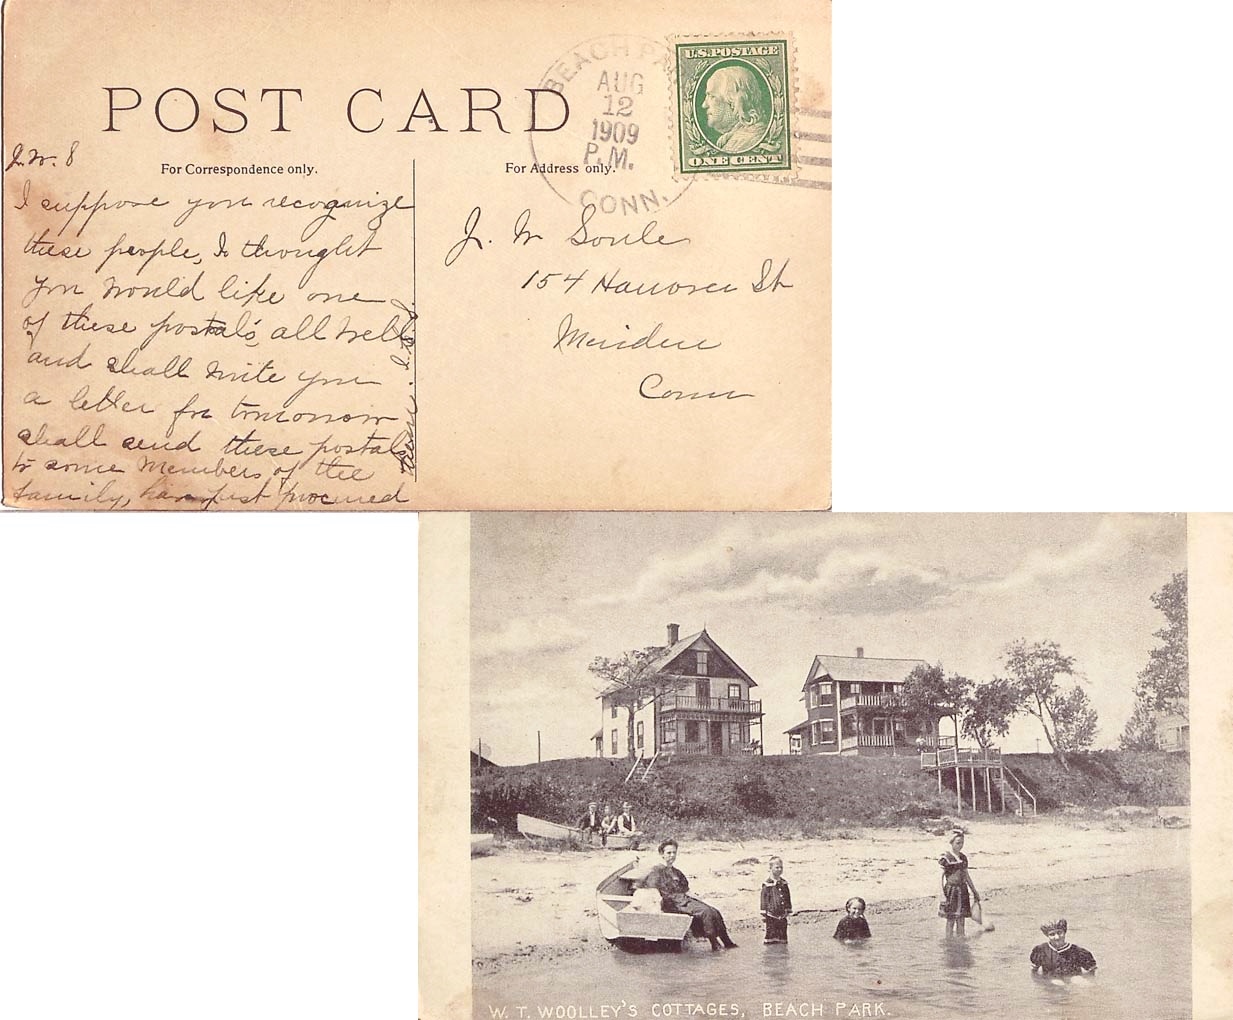 POST CARD
For Correspondence only.
For Address only.
BEACH PA
AUG
12
1909
P.M.
CONN.
U.S. POSTAGE
ONE CENT
J. W. S
I suppose you recognize
these people, I thought
you would like one
of these postal's, all well
and shall write you
a letter for tomorrow
shall send these postals
to some members of the
family, have just procured
them. J. W. S.
J. W Soule
154 Hanover St
Meriden
Conn
W. T. WOOLLEY'S COTTAGES, BEACH PARK.